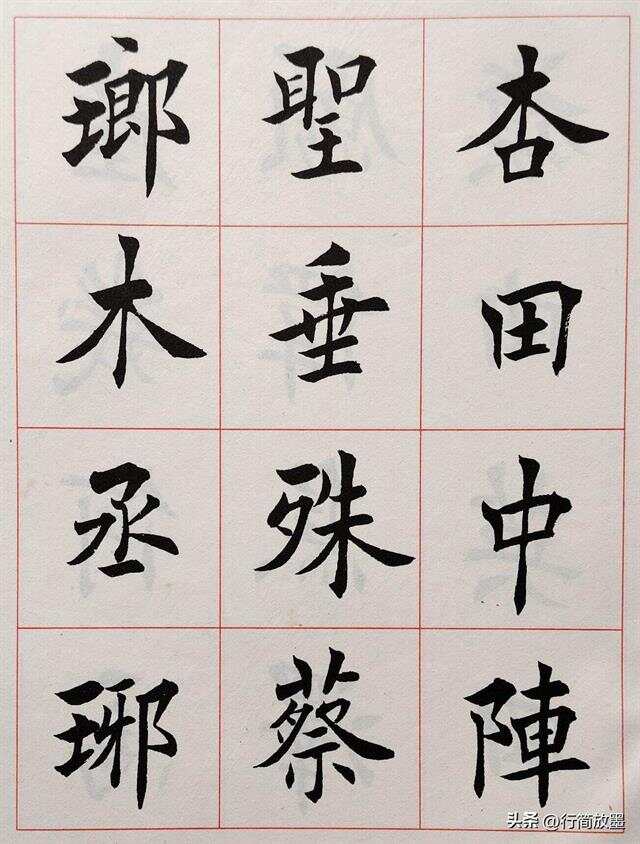 杏田中陣
聖垂殊蔡
瑯木丞琊
头条 @行简放墨